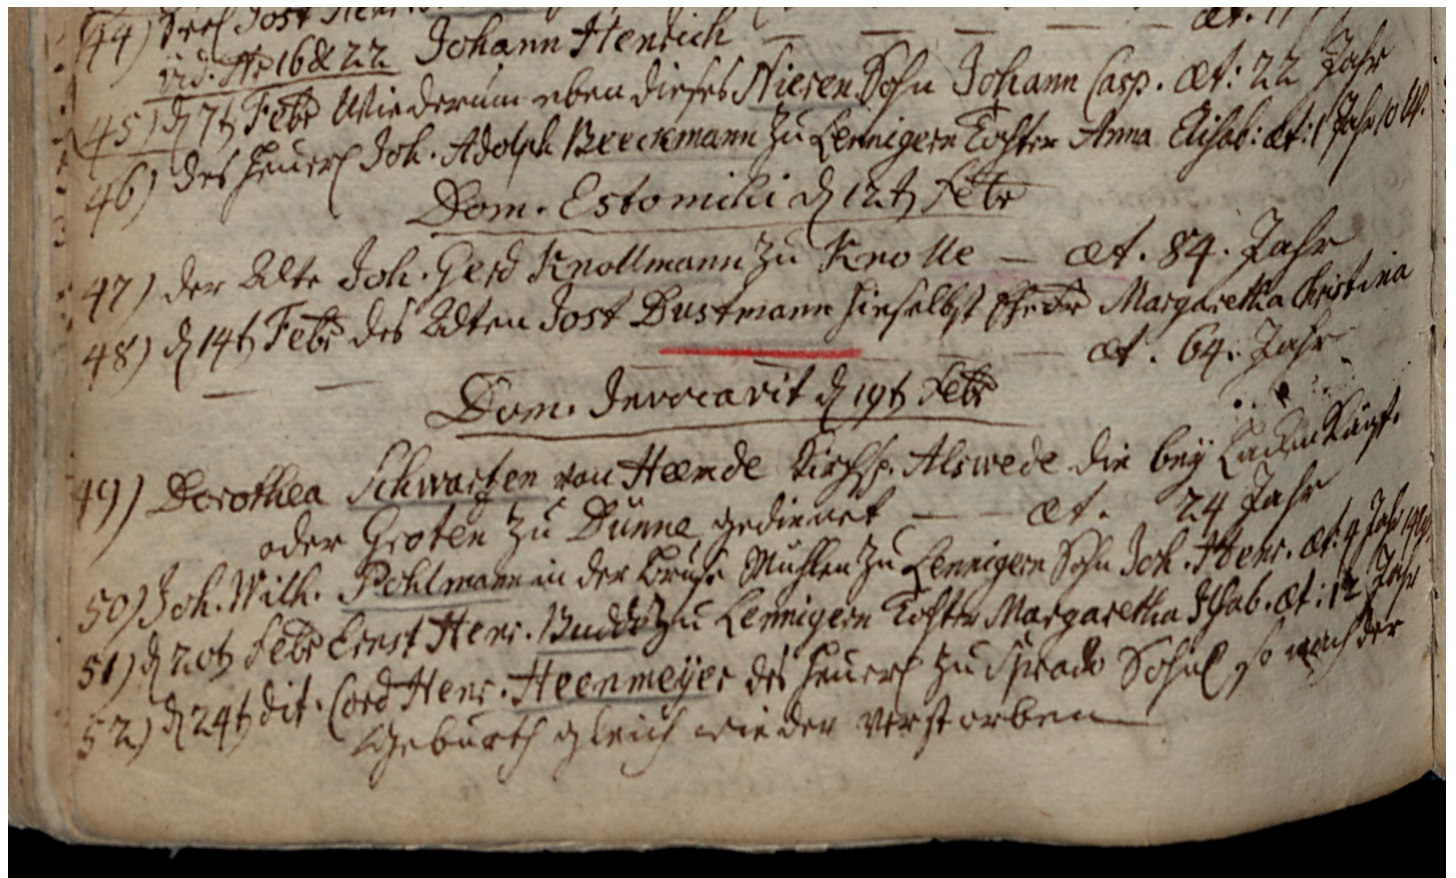 44)
Johann Henrich — — — — æt.
45) d 7t Febr Wiederum eben dieses Niesen Sohn Johann Casp. æt: 22 Jahr
46) des Heuerl Joh. Adolph Beeckmann zu Lennigern Tochter Anna Elisab: æt: 1 Jahr 10 W.
Dom. Estomihi d 12t Febr
47) der Alte Joh. Gerd Knollmann zu Knolle — æt. 84. Jahr
48) d 14t Febr des Alten Jost Dustmann hieselbst Margaretha Christina
— — — — — æt. 64. Jahr
Dom. Invocavit d 19t Febr
49) Dorothea Schwartzen von Heemde Kirchsp. Alswede die bey
oder Groten zu Dünne gedienet — — æt. 24 Jahr
50) Joh. Wilh. Pohlmann in der Mühlen zu Lennigern Sohn Joh. Henr. æt: 4 Jahr
51) d 20t Febr Ernst Henr. Budde zu Lennigern Tochter Margaretha Ilsab. æt: 12 Jahr
52) d 24t dit. Cord Henr. Heenmeyer des Heuerl zu Spradо Sohnl so nach der
Geburth gleich wieder verstorben —